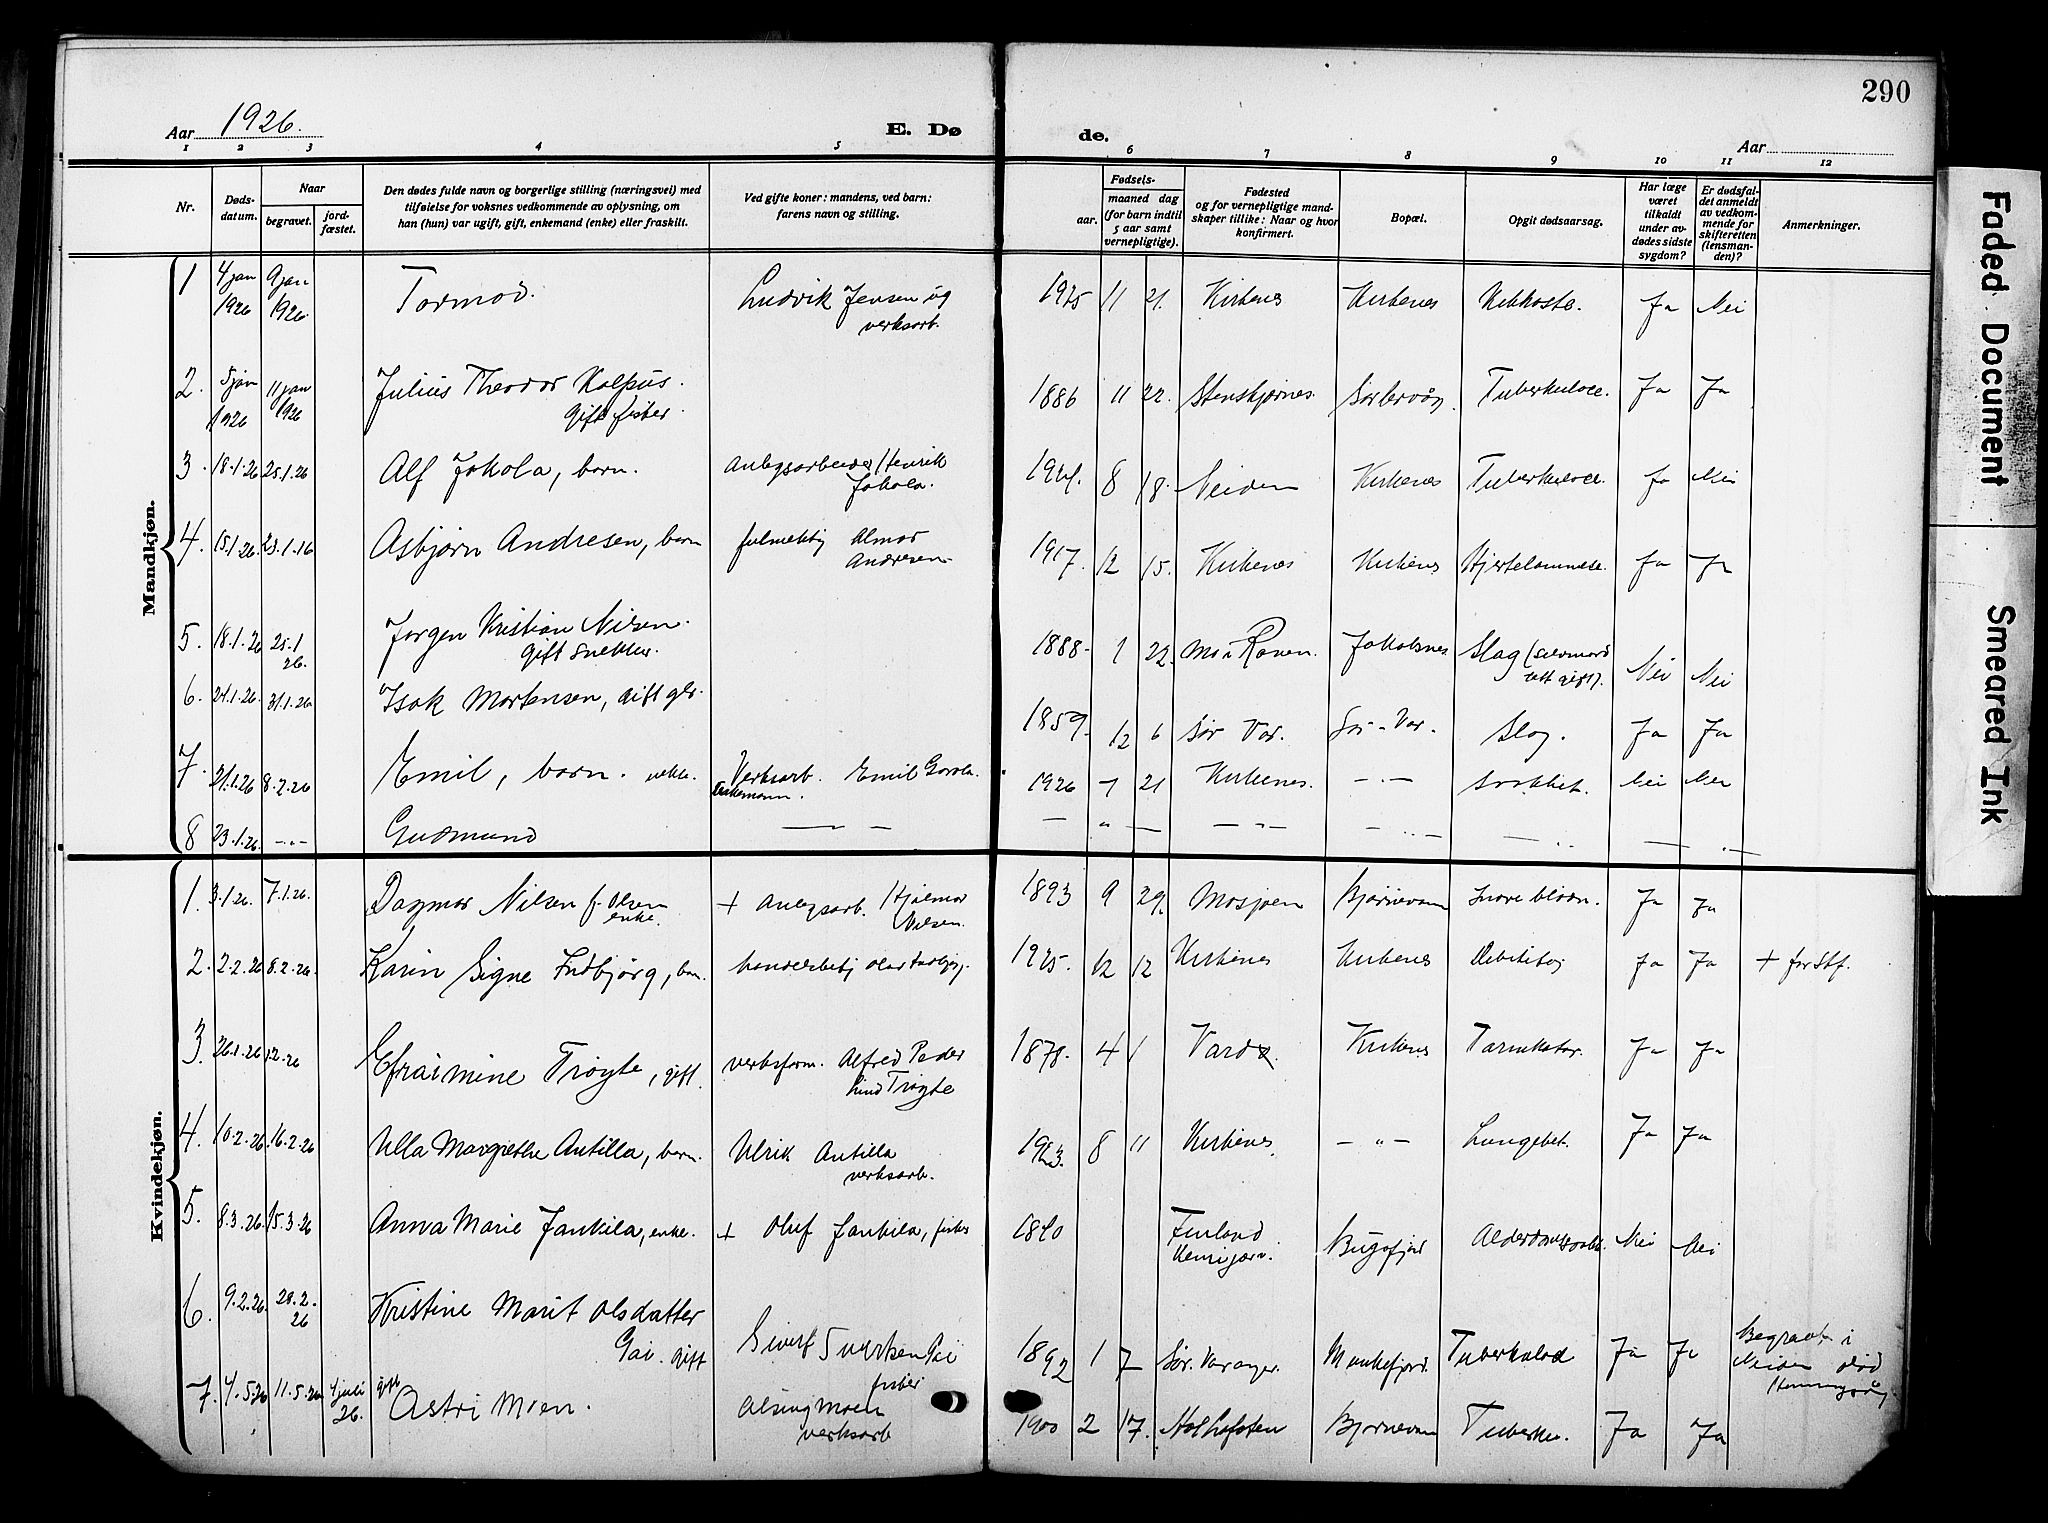 290
Aar 1926.
E. Dø
de.
Aar
1 2 3 4 5 6 7 8 9 10 11 12
Nr.
Døds-
datum.
Naar
begravet.
jord-
fæstet.
Den dødes fulde navn og borgerlige stilling (næringsvei) med
tilføielse for voksnes vedkommende av oplysning, om
han (hun) var ugift, gift, enkemand (enke) eller fraskilt.
Ved gifte koner: mandens, ved barn:
farens navn og stilling.
Fødsels-
aar.
maaned dag
(for barn indtil
5 aar samt
vernepligtige).
Fødested
og for vernepligtige mand-
skaper tillike: Naar og hvor
konfirmert.
Bopæl.
Opgit dødsaarsag.
Har læge
været
tilkaldt
under av-
dødes sidste
sygdom?
Er dødsfal-
det anmeldt
av vedkom-
mende for
skifteretten
(lensman-
den)?
Anmerkninger.
Mandkjøn.
1 4 jan 1926 9 jan 1926 Tormod. Ludvik Jensen
verksarb. 1925 11 21. Kirkenes Kirkenes Kikhoste. Ja Nei
2. 5 jan 1926 11 jan 1926 Julius Theodor Kalpus.
gift fisker. 1886 11 22. Stenskjærnes. Tuberkulose. Ja Ja
3. 18.1.26 25.1.26 Alf Jokola, barn. anlegsarbeider Henrik
Jokola. 8 18. Neiden Kirkenes Tuberkulose. Ja Nei
4. 15.1.26 23.1.16 Asbjørn Andresen, barn fulmektig Almar
Andresen 1917. 12 15. Kirkenes Kirkenes Hjertelammelse. Ja Ja
5. 18.1.26 25.1 26. Jørgen Kristian Nilsen.
gift snekker. 1888. 1 22. Mo i Ranen. Jakobsnes Slag (selvmord
Nei Nei
6. 24.1.26. 31.1.26 Isak Mortensen, gift 1859. 12 6 Sør Var. Sør-Var. Slag. Ja Ja
7. 21.1.26 8.2.26 Emil, barn. Verksarb. Emil
1926 1 21 Kirkenes. — " — Nei Nei
8 23.1.26. — " — Gudmund — — — " — — " — — " — — " — — " —
Kvindekjøn.
1. 3.1.26. 7.1.26. Dagmar Nilsen f. Olsen
enke. + Anlegsarb. Hjalmar
Nilsen. 1893 9 29. Mosjøen Bjørnevatn Ja Ja
2. 2.2.26 8.2.26. Karin Signe Indbjørg, barn. 1925. 12 12 Kirkenes Kirkenes Debilitas Ja Ja + før Stf.
3. 26.1.26 1.2.26 Efraimine Trøgte, gift. verksform. Alfred Peder
Lind Trøgte 1878. 4 1 Vardø. Kirkenes Tarmkatar. Ja Ja
4. 10.2.26. 16.2.26 Ulla Margrethe Antilla, barn. Ulrik Antilla
verksarb. 1923. 8 11 Kirkenes — " — Lungebet. Ja Ja
5. 8.3.26. 15.3.26 Anna Marie Jankila, enke. + Oluf Jankila, fisker 1840 Finland
Bugøfjord Nei Nei
6. 9.2.26 28.2. 26 Kristine Marit Olsdatter
Gai. gift Sivert Gai
fisker 1892 1 7 Sør. Varanger. Munkefjord. Tuberkulose Ja Ja Begravet i
Neiden
7. 4.5.26 11.5.26 4 juli 26. gift Astri Moen. Moen
verksarb 1900 2 17. Bjørnevatn Tuberku. Ja Ja
Faded Document
Smeared Ink